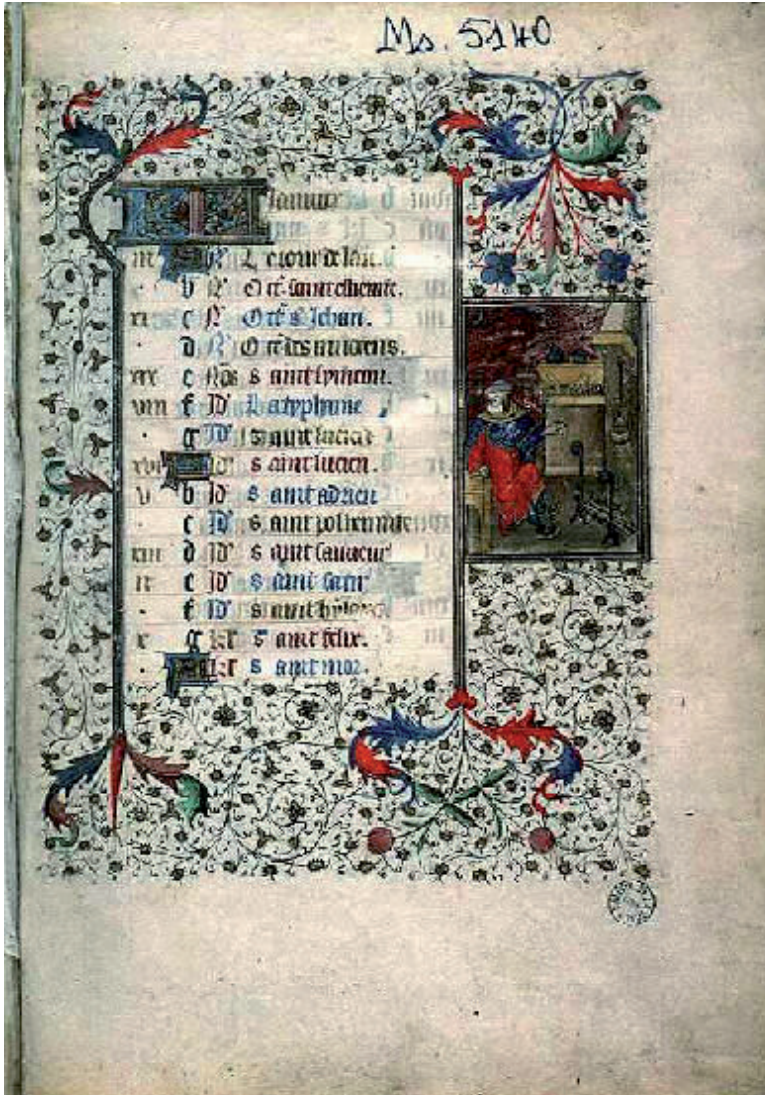 Ms. 5140
KL Januier
iii A N Le iour de lan.
b N Oct. saint estienne.
xi c N Oct. s. Jehan.
d N Oct. les innocens.
xix e Nos saint symeon.
viii f Id' La typhaine
g Id' saint lucian
xvi A Id' saint lucien.
v b Id' saint adrien
c Id' saint
xiii d Id' saint sauueur
ii e Id' saint satir
f Id' saint hylaire
x g kr saint felix.
A kr saint mor.